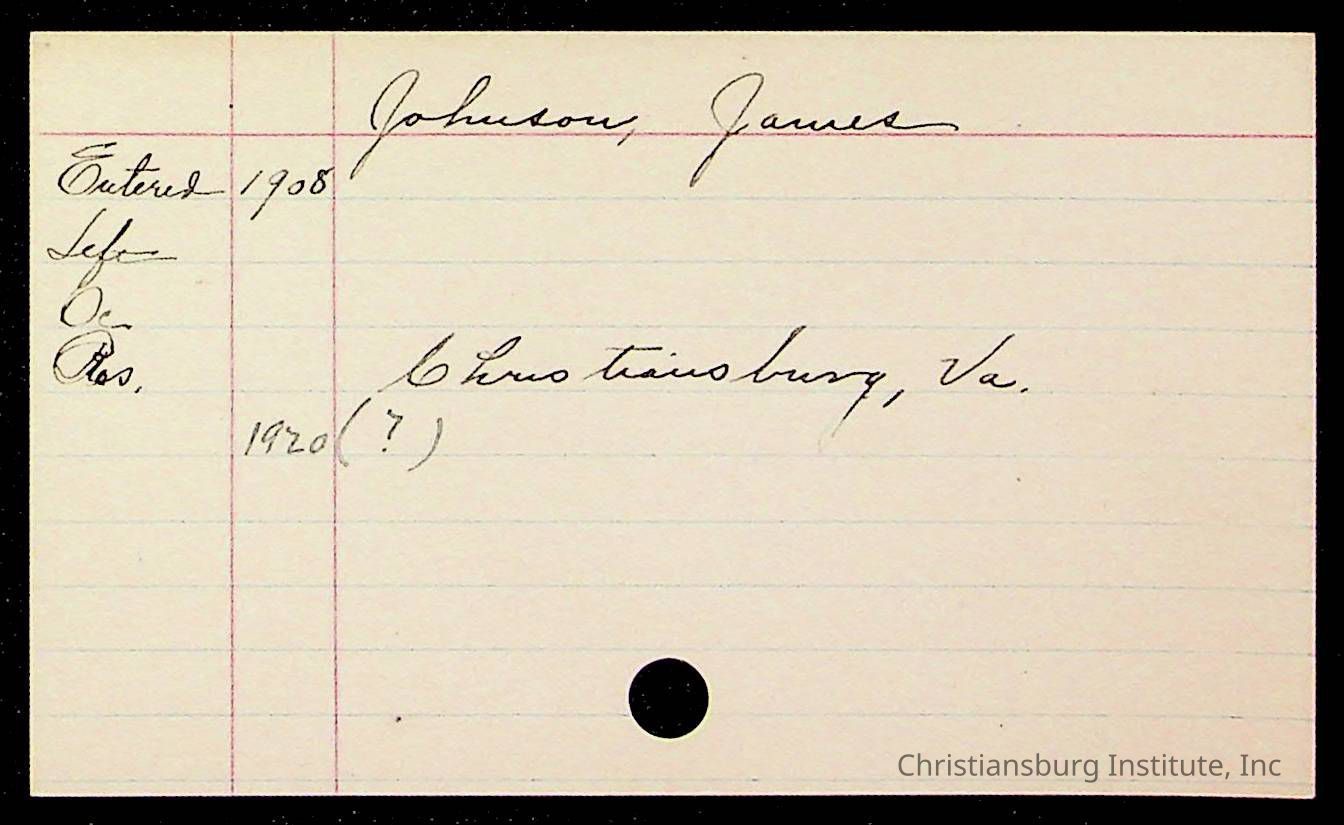 Johnson, James
Entered 1908
Left
Oc
Res. Christiansburg, Va.
1920 (?)
Christiansburg Institute, Inc